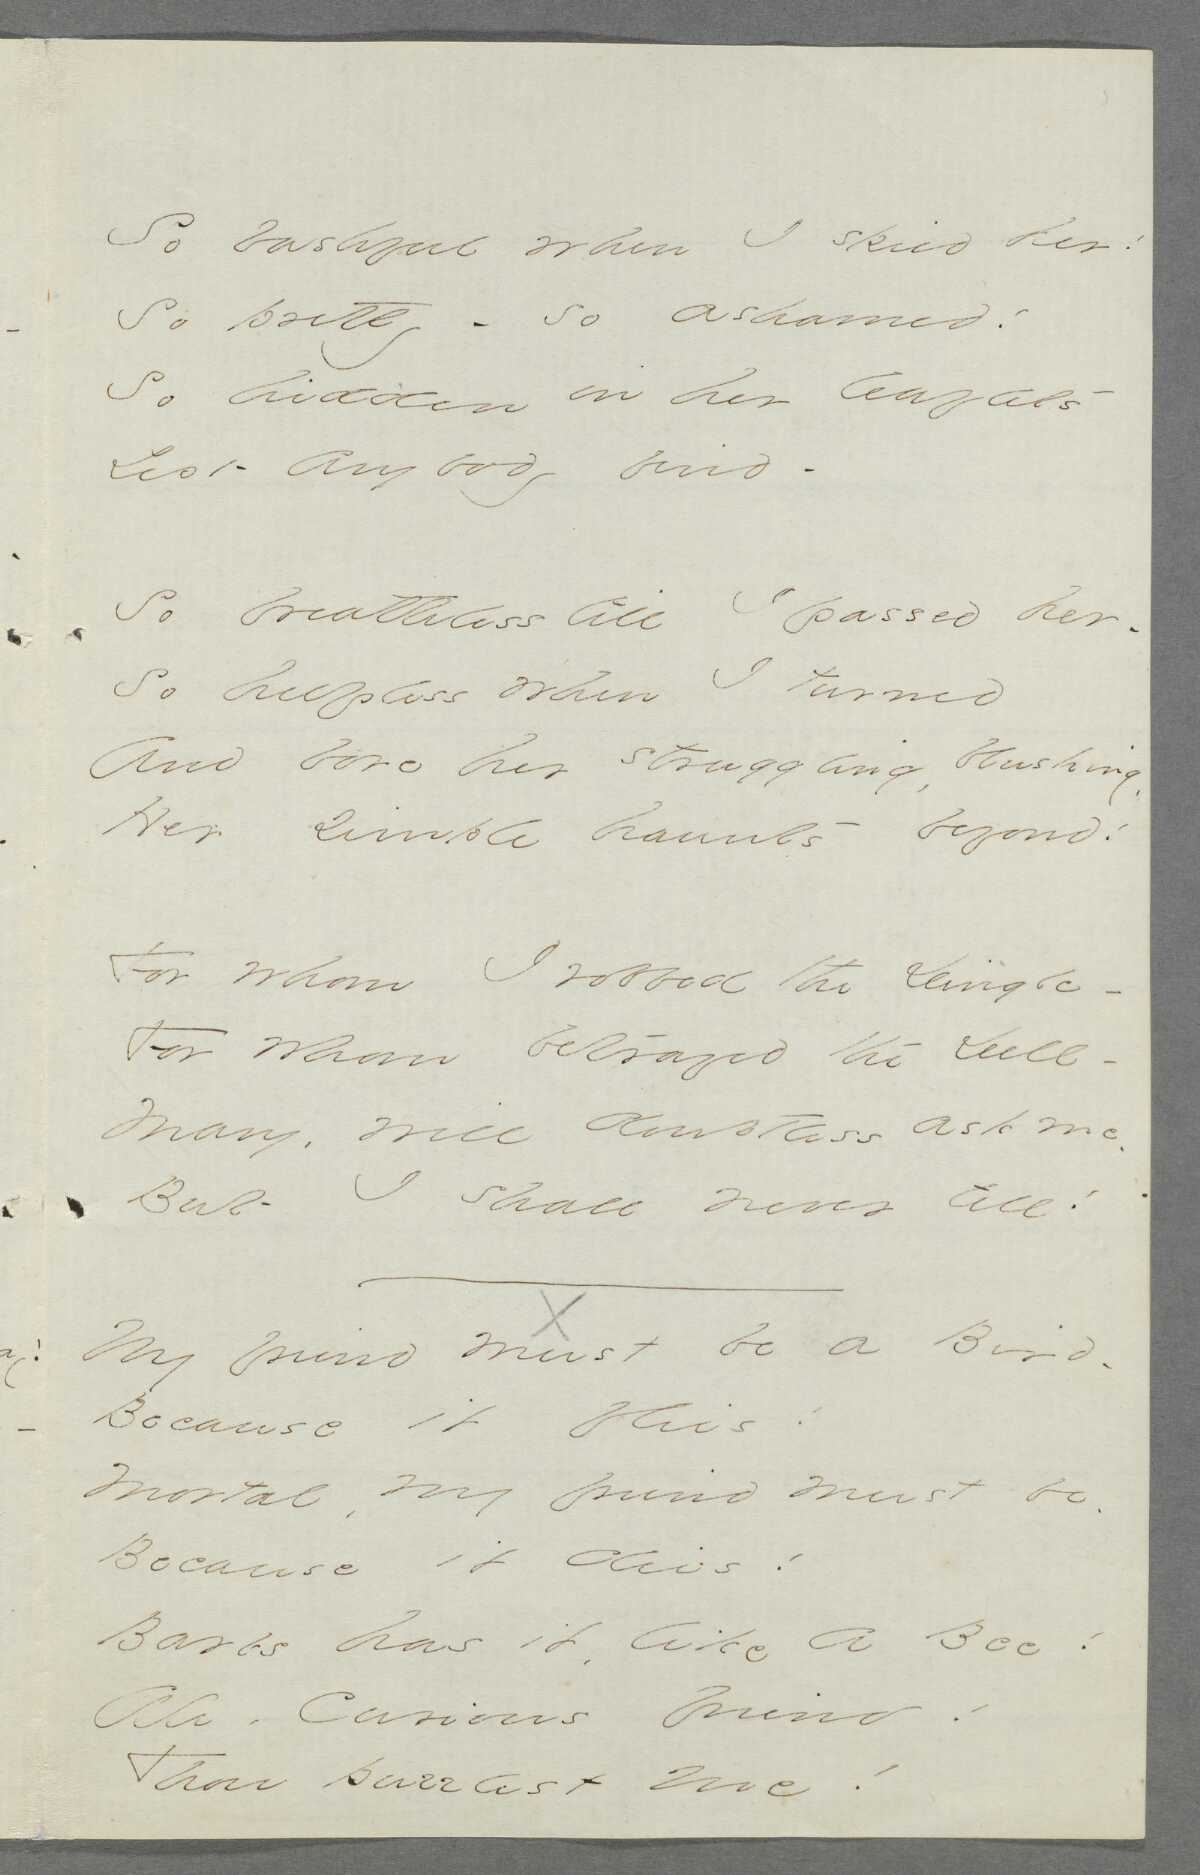 So bashful when I spied her!
So pretty - so ashamed!
So hidden in her leaflets
Lest anybody find -
So breathless till I passed her -
So helpless when I turned
And bore her struggling, blushing,
Her simple haunts beyond!
For whom I robbed the Dingle -
For whom betrayed the Dell -
Many, will doubtless ask me,
But I shall never tell!
X
My friend must be a Bird -
Because it flies!
Mortal, my friend must be,
Because it dies!
Barbs has it, like a Bee!
Ah, curious friend!
Thou puzzlest me!